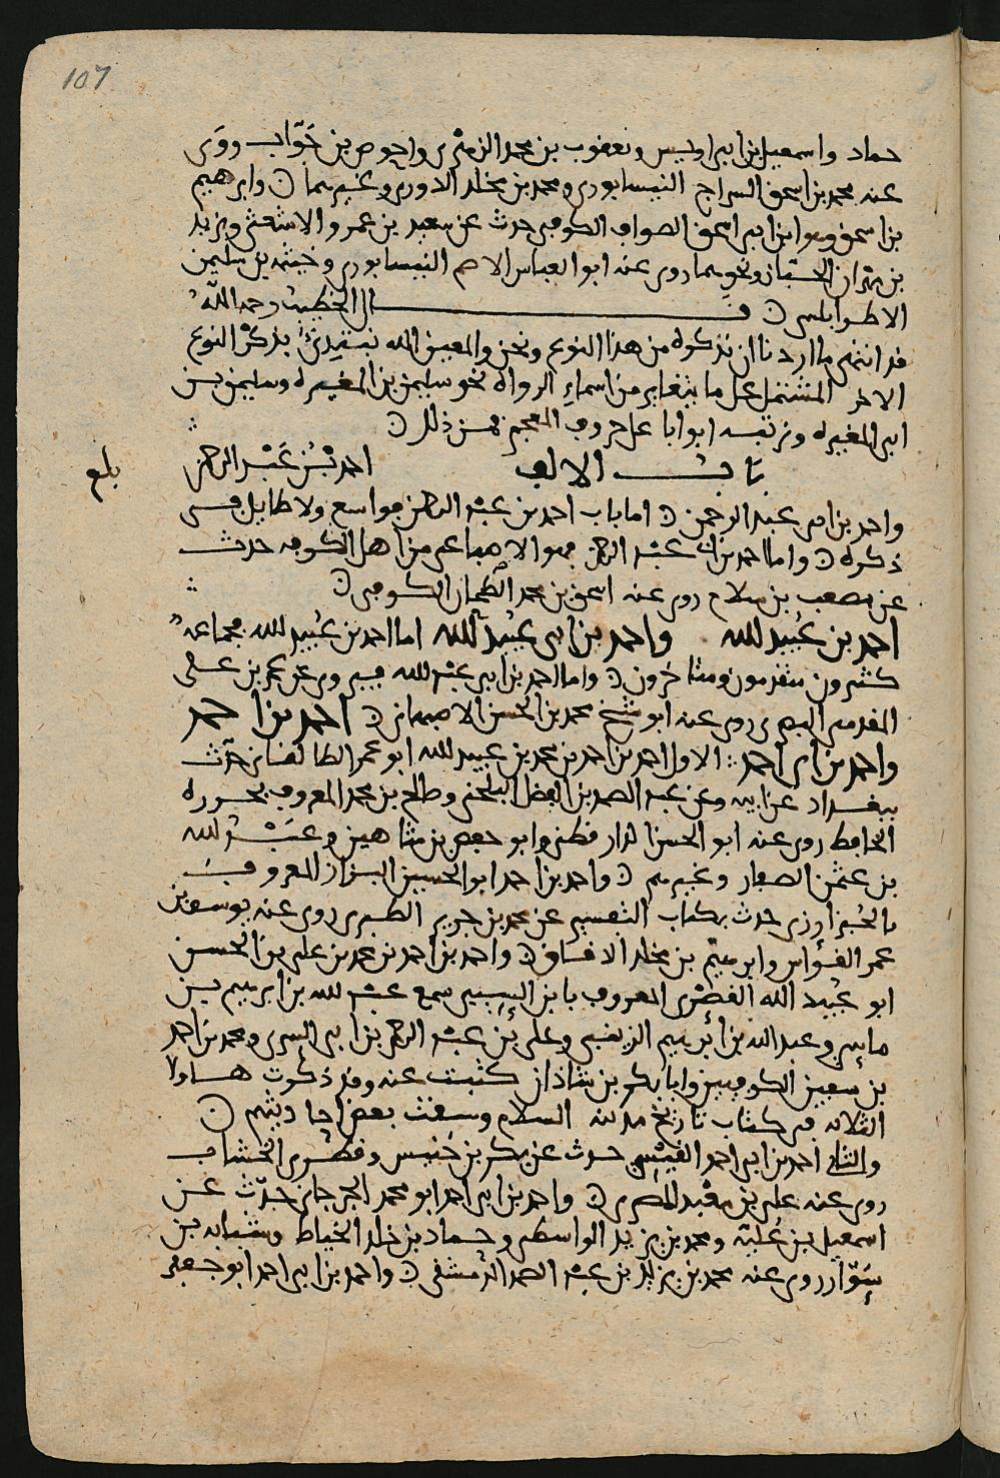 107
حماد واسمعيل بن ابي اويس ويعقوب بن محمد الزهري واحوص بن جواب روى
عنه محمد بن اسحق السراج النيسابوري ومحمد بن مخلد الدوري وغيرهما ن وابرهيم
بن اسحق وهو ابن ابي اسحق الصواف الكوفي حدث عن سعيد بن عمرو الاشعثي ويزيد
بن مهران الخباز ونحوهما روى عنه ابو العباس الاصم النيسابوري وخيثمه بن سليمن
الاطرابلسي ن قال الخطيب رحمه الله
قد انتهى ما اردنا ان نذكره من هذا النوع ونحن والمعين الله نبتدئ بذكر النوع
الاخر المشتمل على ما يتغاير من اسماء الرواه نحو سليمن بن المغيره وسليمن بن
ابي المغيره ونرتبه ابوابا على حروف المعجم فمن ذلك ن
باب الالف احمد بن عبد الرحمن
بلغ
واحمد بن ابي عبد الرحمن ن اما باب احمد بن عبد الرحمن فواسع ولا طايل في
ذكره ن واما احمد بن ابي عبد الرحمن فهو الاصباعي من اهل الكوفه حدث
عن مصعب بن سلام روى عنه اسحق بن محمد الطحان الكوفي ن
احمد بن عبيد الله واحمد بن ابي عبيد الله اما احمد بن عبيد الله فجماعه
كثيرون متقدمون ومتاخرون ن واما احمد بن ابي عبيد الله فيروي عن عمر بن علي
المقدمي البصري روى عنه ابو شيخ محمد بن الحسن الاصبهاني ن احمد بن احمد
واحمد بن ابي احمد : الاول احمد بن احمد بن محمد بن عبيد الله ابو عمر الطالقاني حدث
ببغداد عن ابيه وعن عبد الصمد بن الفضل البلخي وصالح بن محمد المعروف بجزره
الحافظ روى عنه ابو الحسن الدارقطني وابو حفص بن شاهين وعبيد الله
بن عثمن الصفار وغيرهم ن واحمد بن احمد ابو الحسين البزاز المعروف
بالخبزارزي حدث بكتاب التفسير عن محمد بن جرير الطبري روى عنه يوسف بن
عمر القواس وابرهيم بن مخلد الدقاق ن واحمد بن احمد بن محمد بن علي بن الحسن
ابو عبيد الله القصري المعروف بابن السيبي سمع عبد الله بن ابرهيم بن
ماسي وعبد الله بن ابرهيم الزينبي وعلي بن عبد الرحمن بن ابي السري ومحمد بن احمد
بن سفين الكوفيين وابا بكر بن شاذان كتبت عنه وقد ذكرت هاولا
الثلاثه في كتاب تاريخ مدينه السلام وسقت بعض احاديثهم ن
والثاني احمد بن ابي احمد القيسي حدث عن بكر بن خنيس وقطري الخشاب
روى عنه علي بن معبد المصري ن واحمد بن ابي احمد ابو محمد الجرجاني حدث عن
اسمعيل بن علية ومحمد بن يزيد الواسطي وحماد بن خلد الخياط وشبابه بن
سوار روى عنه محمد بن يزيد بن عبد الصمد الدمشقي ن واحمد بن ابي احمد ابو جعفر